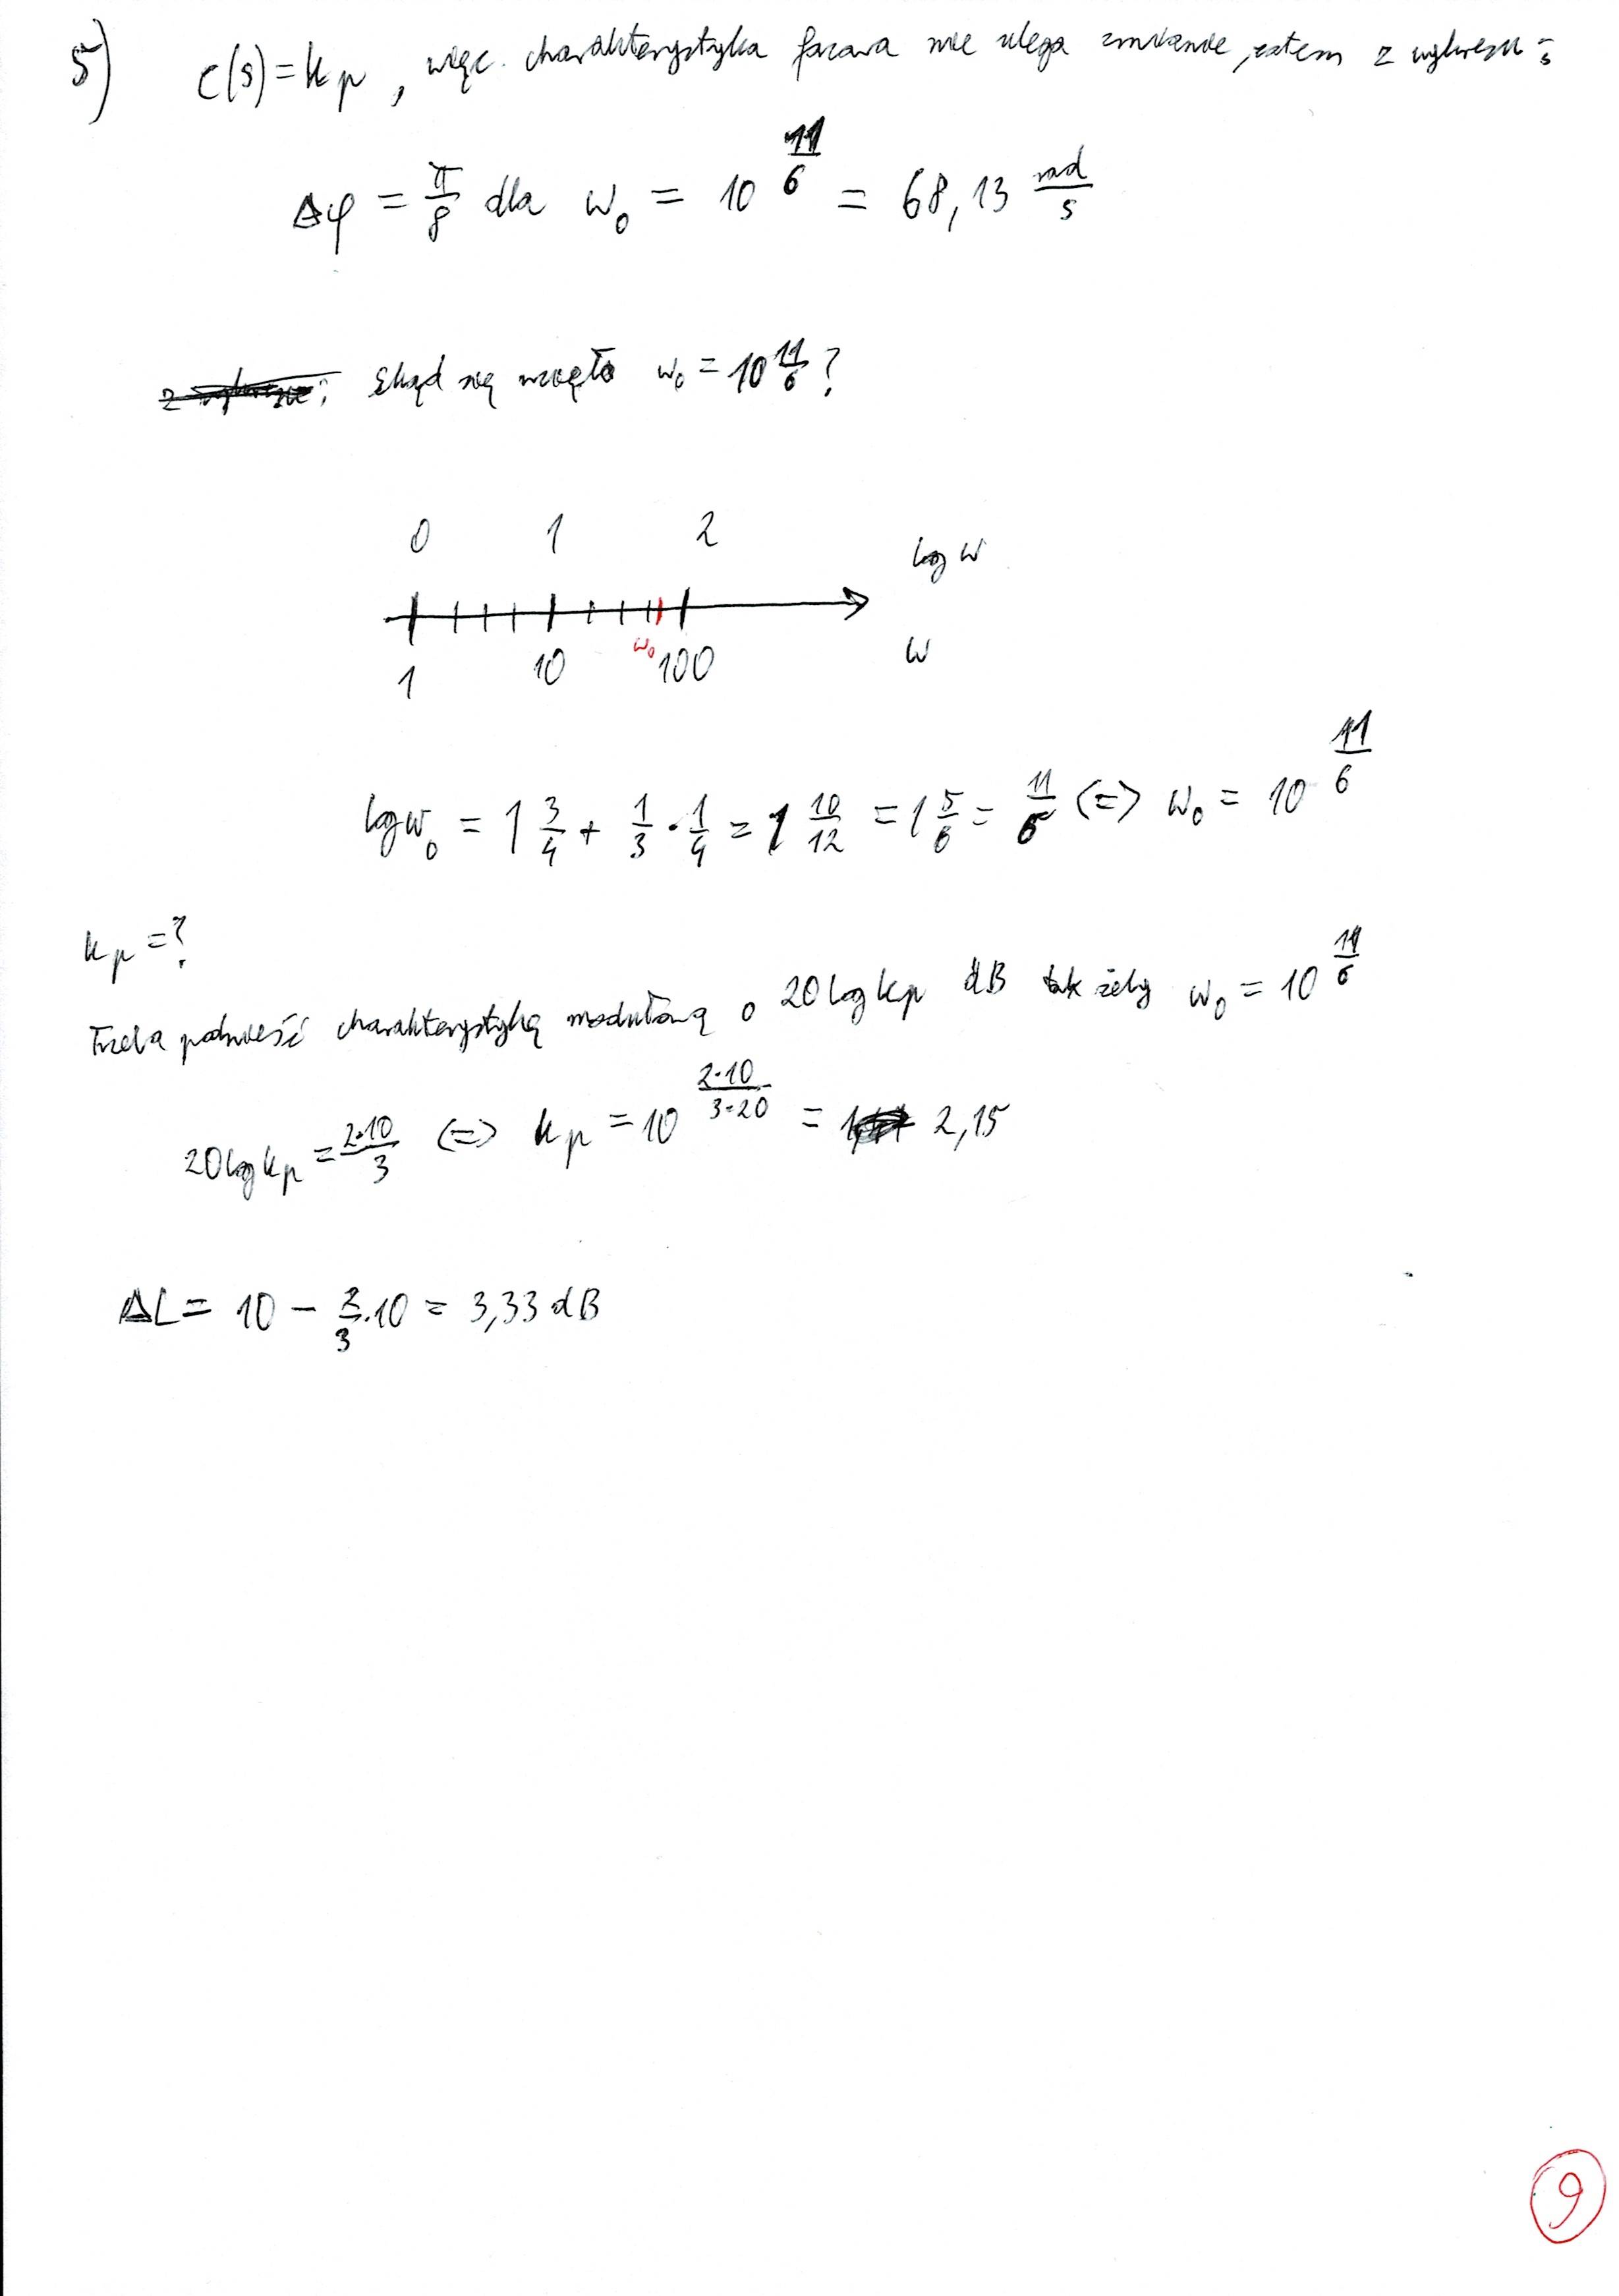 5) C(s) = kp, więc. charakterystyka fazowa nie ulega zmianie, zatem z wykresu:
Δφ = π/8 dla ω₀ = 10^(11/6) = 68,13 rad/s
Skąd się wzięło ω₀ = 10^(11/6)?
0 1 2 log ω
1 10 ω₀ 100 ω
log ω₀ = 1 3/4 + 1/3 · 1/4 = 1 10/12 = 1 5/6 = 11/6 (=) ω₀ = 10^(11/6)
kp = ?
Trzeba podnieść charakterystykę modułową o 20 log kp dB tak żeby ω₀ = 10^(11/6)
20 log kp = 2·10/3 (=) kp = 10^(2·10/3·20) = 2,15
ΔL = 10 − 2/3·10 = 3,33 dB
9